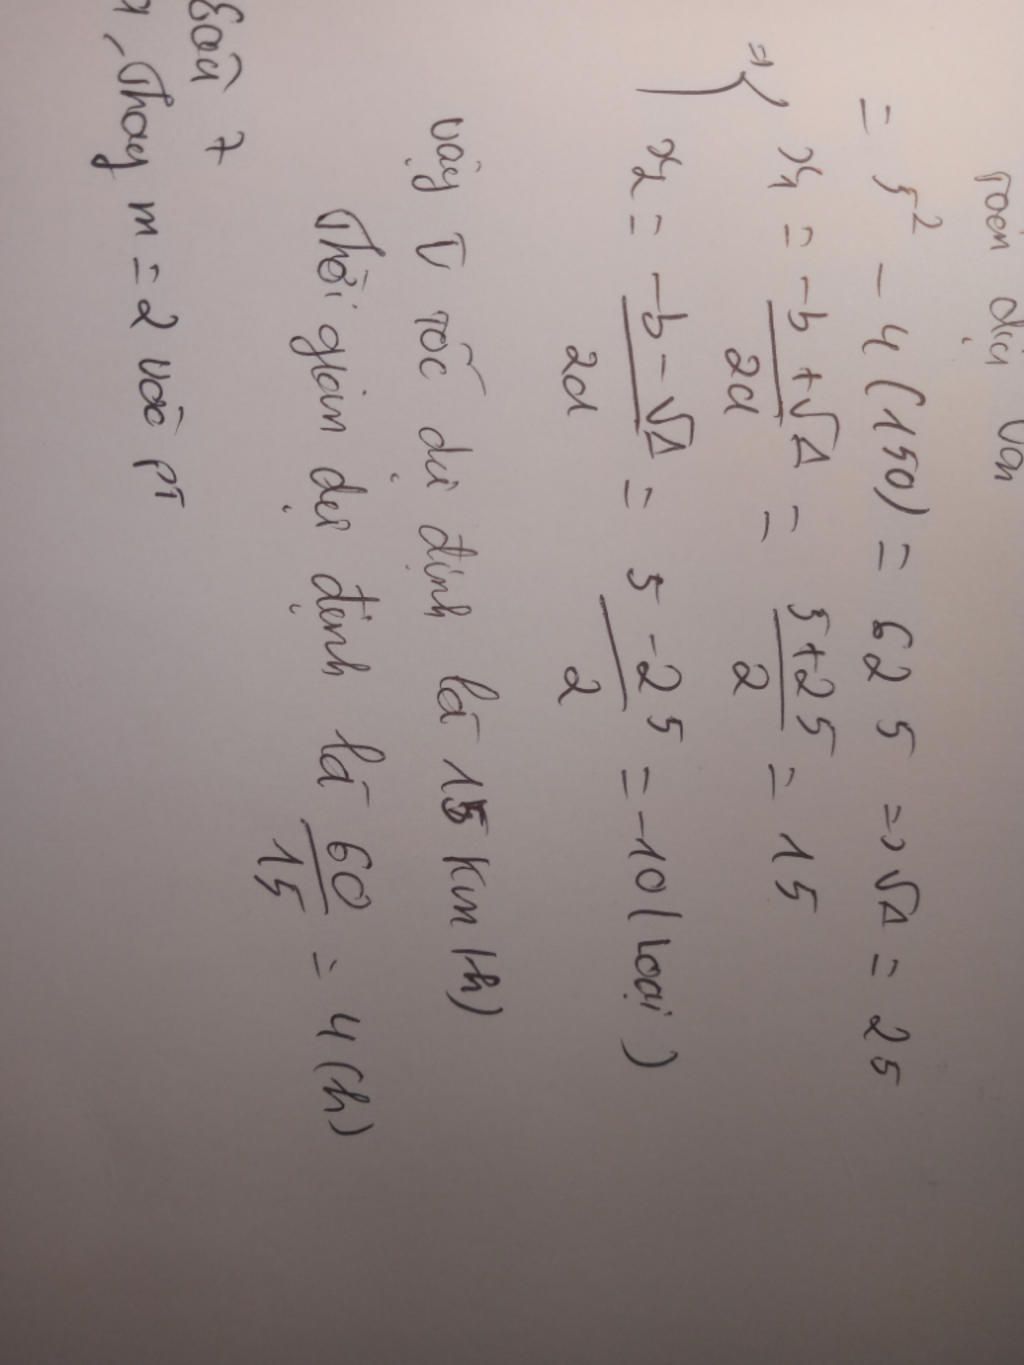 = 5² - 4(150) = 625 => √Δ = 25
=> x₁ = (-b + √Δ)/2a = (5 + 25)/2 = 15
x₂ = (-b - √Δ)/2a = (5 - 25)/2 = -10 (loại)
Vậy V tốc dự định là 15 km/h)
Thời gian dự định là 60/15 = 4 (h)
Câu 7
Thay m = 2 vào PT